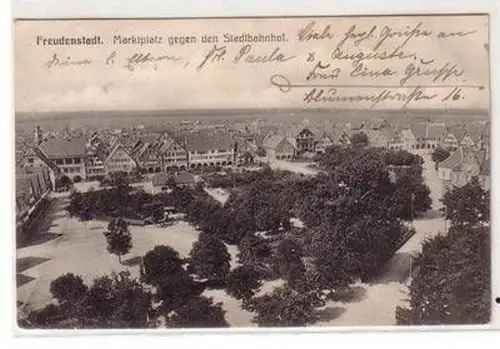 Freudenstadt. Marktplatz gegen den Stadtbahnhof.
Viele hzgl. Grüße an
meine l. Eltern, Frl. Paula & Auguste.
Frau Lina
Blumenstraße 16.